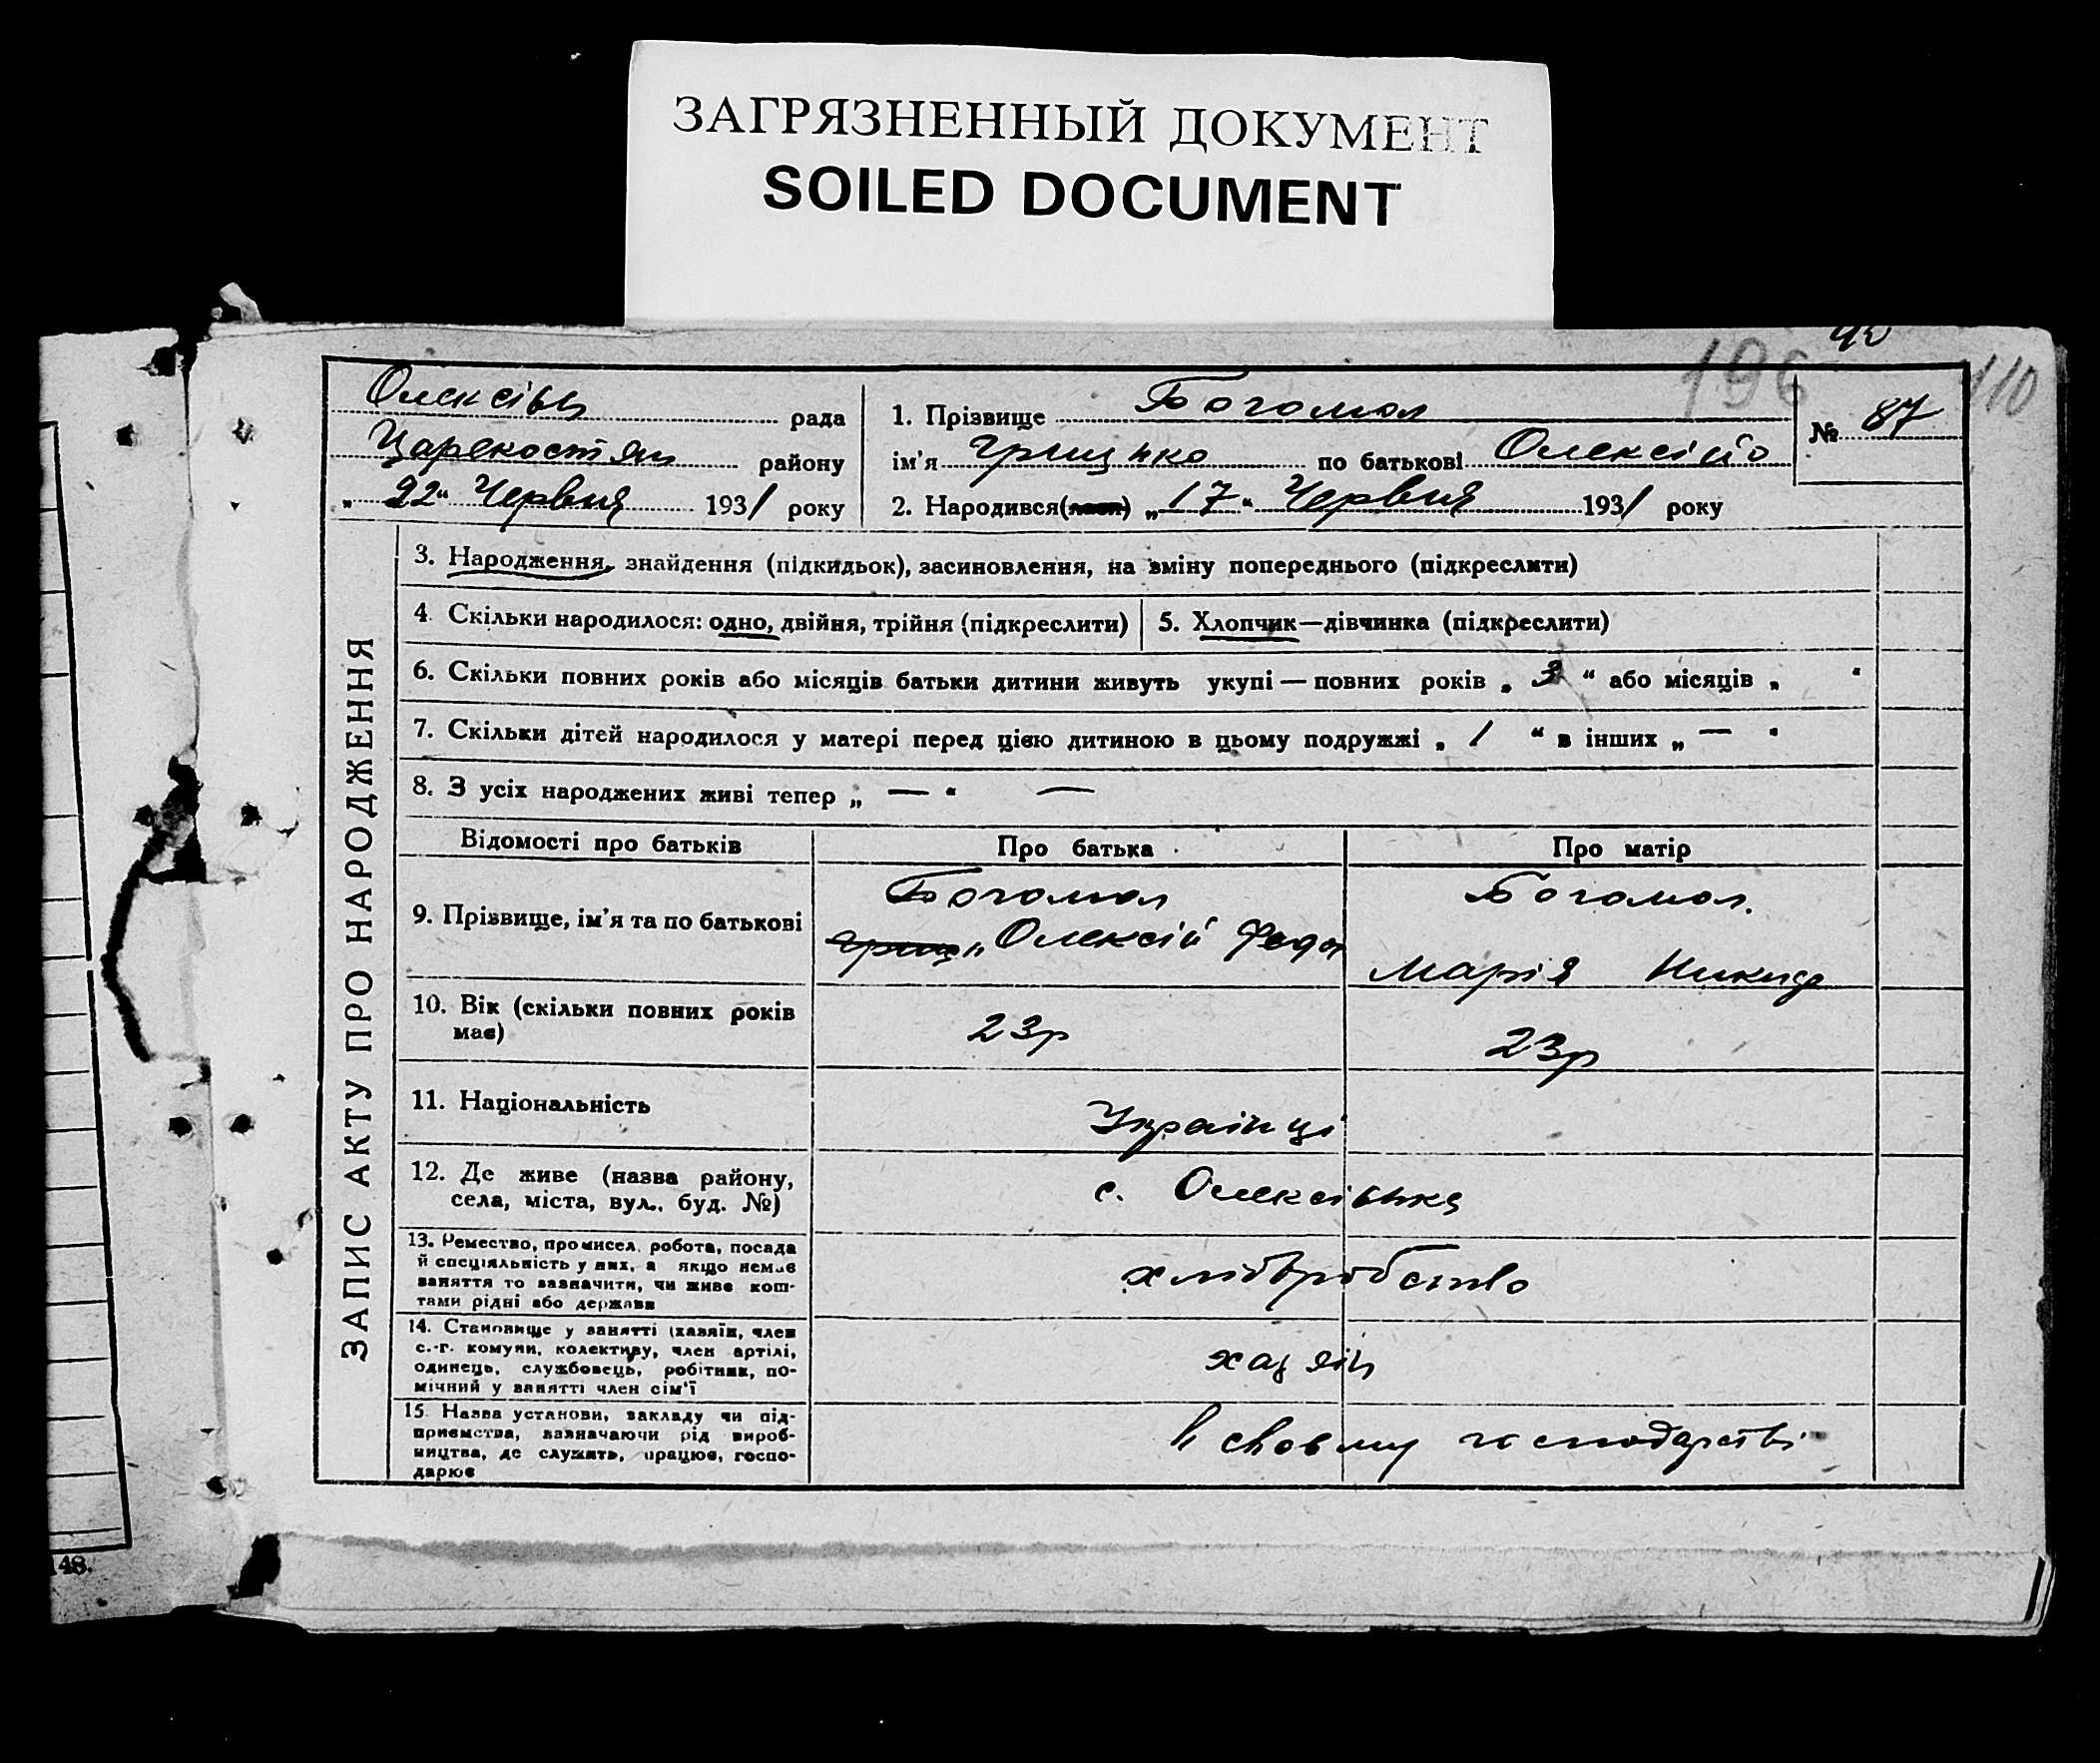 ЗАГРЯЗНЕННЫЙ ДОКУМЕНТ
SOILED DOCUMENT
196
110
Олексівц рада
Царекостян району
„22“ Червня 1931 року
1. Прізвище Богомол
ім’я Грицько по батькові Олексійо
2. Народився „17“ Червня 1931 року
№ 87
ЗАПИС АКТУ ПРО НАРОДЖЕННЯ
3. Народження, знайдення (підкидьок), засиновлення, на зміну попереднього (підкреслити)
4. Скільки народилося: одно, двійня, трійня (підкреслити)
5. Хлопчик—дівчинка (підкреслити)
6. Скільки повних років або місяців батьки дитини живуть укупі — повних років „ 3 “ або місяців „ “
7. Скільки дітей народилося у матері перед цією дитиною в цьому подружжі „ 1 “ в інших „ — “
8. З усіх народжених живі тепер „ — “ —
Відомості про батьків
Про батька
Про матір
9. Прізвище, ім’я та по батькові
Богомол
Гриц „ Олексій Федо
Богомол.
Марія Никид
10. Вік (скільки повних років
має)
23р
23р
11. Національність
Українці
12. Де живе (назва району,
села, міста, вул., буд. №)
с. Олексівка
13. Ремество, промисел, робота, посада
й спеціяльність у них, а якщо немає
заняття то зазначити, чи живе кош-
тами рідні або держави
хліборобство
14. Становище у занятті (хазяїн, член
с.-г. комуни, колективу, член артілі,
одинець, службовець, робітник, по-
мічний у занятті член сім’ї
хазяїн
15. Назва установи, закладу чи під-
приємства, зазначаючи рід вироб-
ництва, де служить, працює, госпо-
дарює
в своєму господарстві
48.